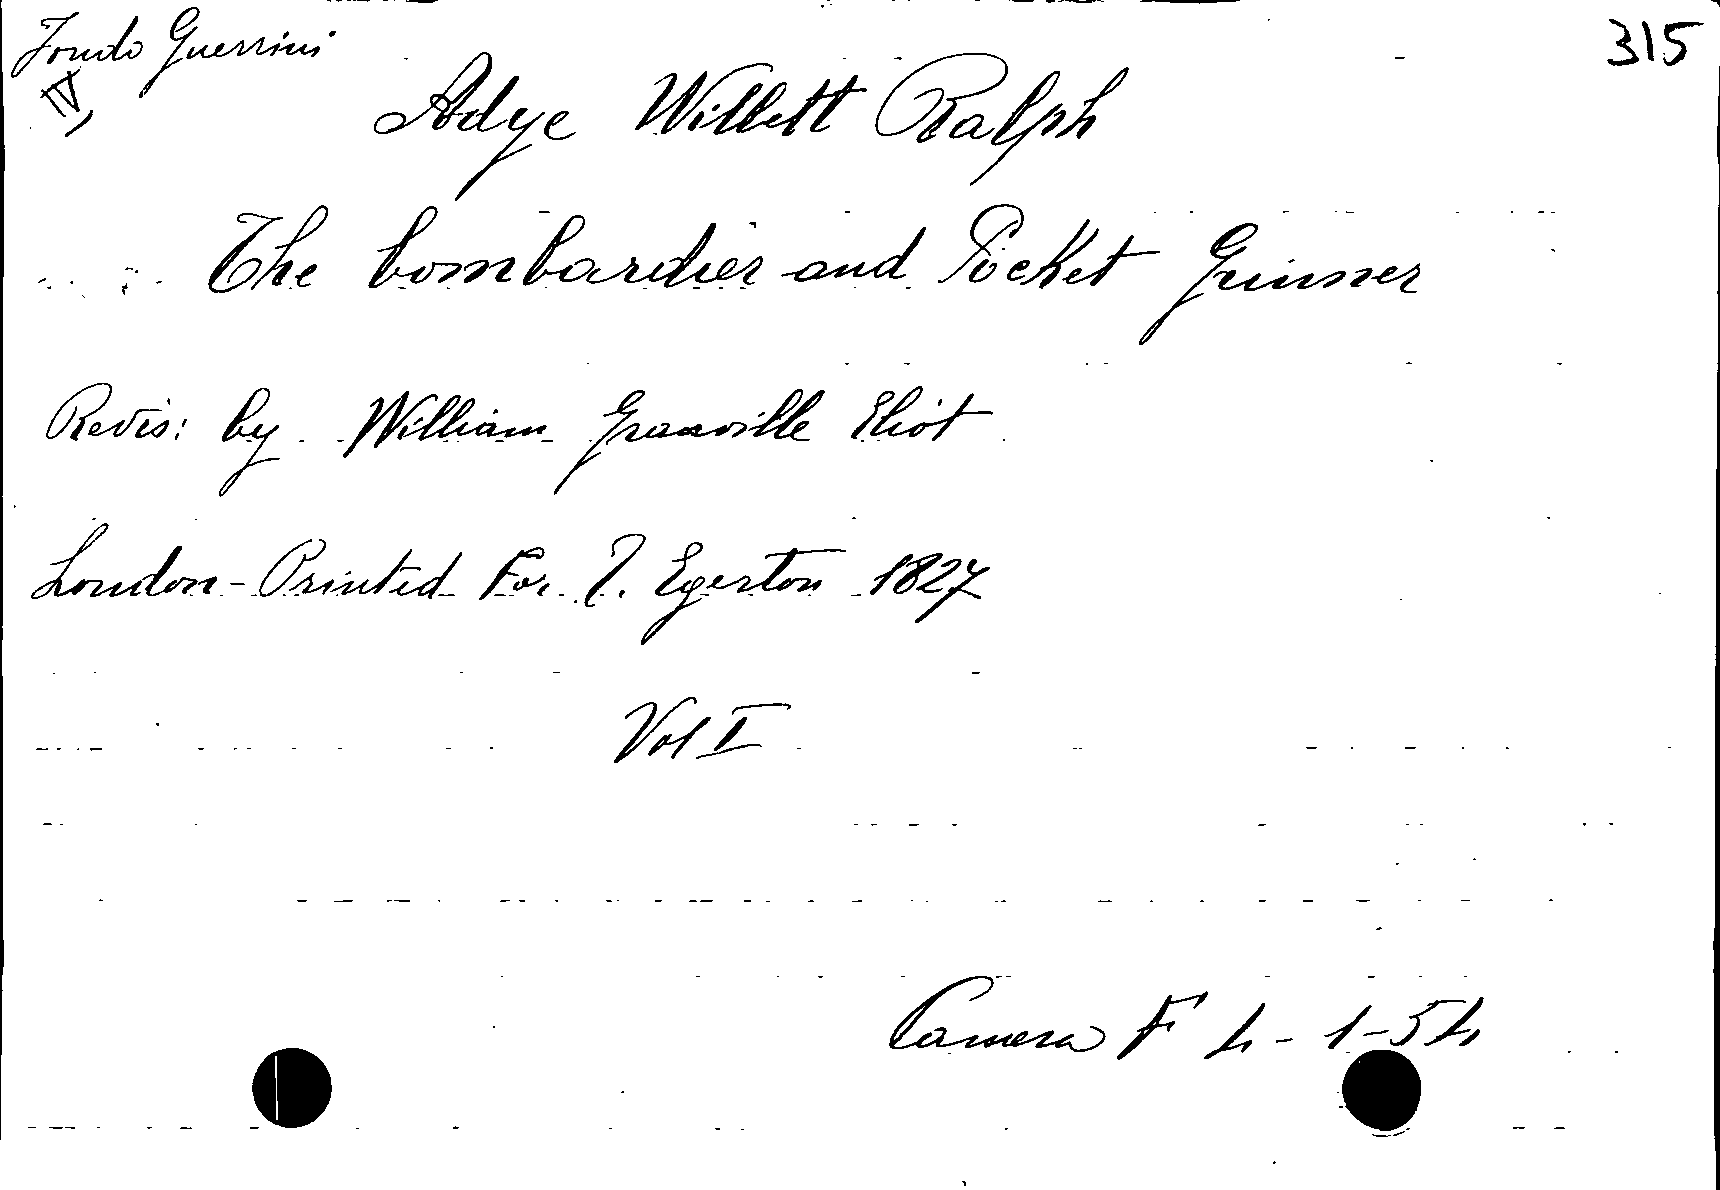 Fondo Guerrini
315
IV,
Adye Willett Ralph
The bombardier and Pocket Gunner
Revis: by William Granville Eliot
London - Printed For T. Egerton 1827
Vol I
Camera F 4 - 1 - 54